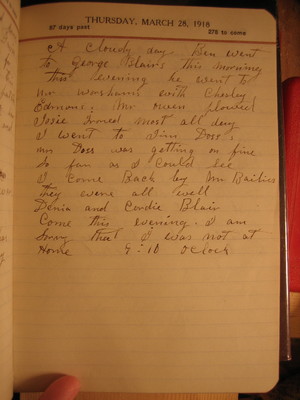 THURSDAY, MARCH 28, 1918
87 days past 278 to come
A Cloudy day Ben went
to George Blairs this morning
this evening he went to
mr worshams with Chesley
Edmons. Mr owen plowed
Josie Ironed most all day
I went to Jim Doss.
mrs Doss was getting on fine
So far as I could see
I come Back by Mr Bailies
they were all well
Denia and Cordie Blair
Come this evening. I am
Sorry that I was not at
Home 9:10 oclock